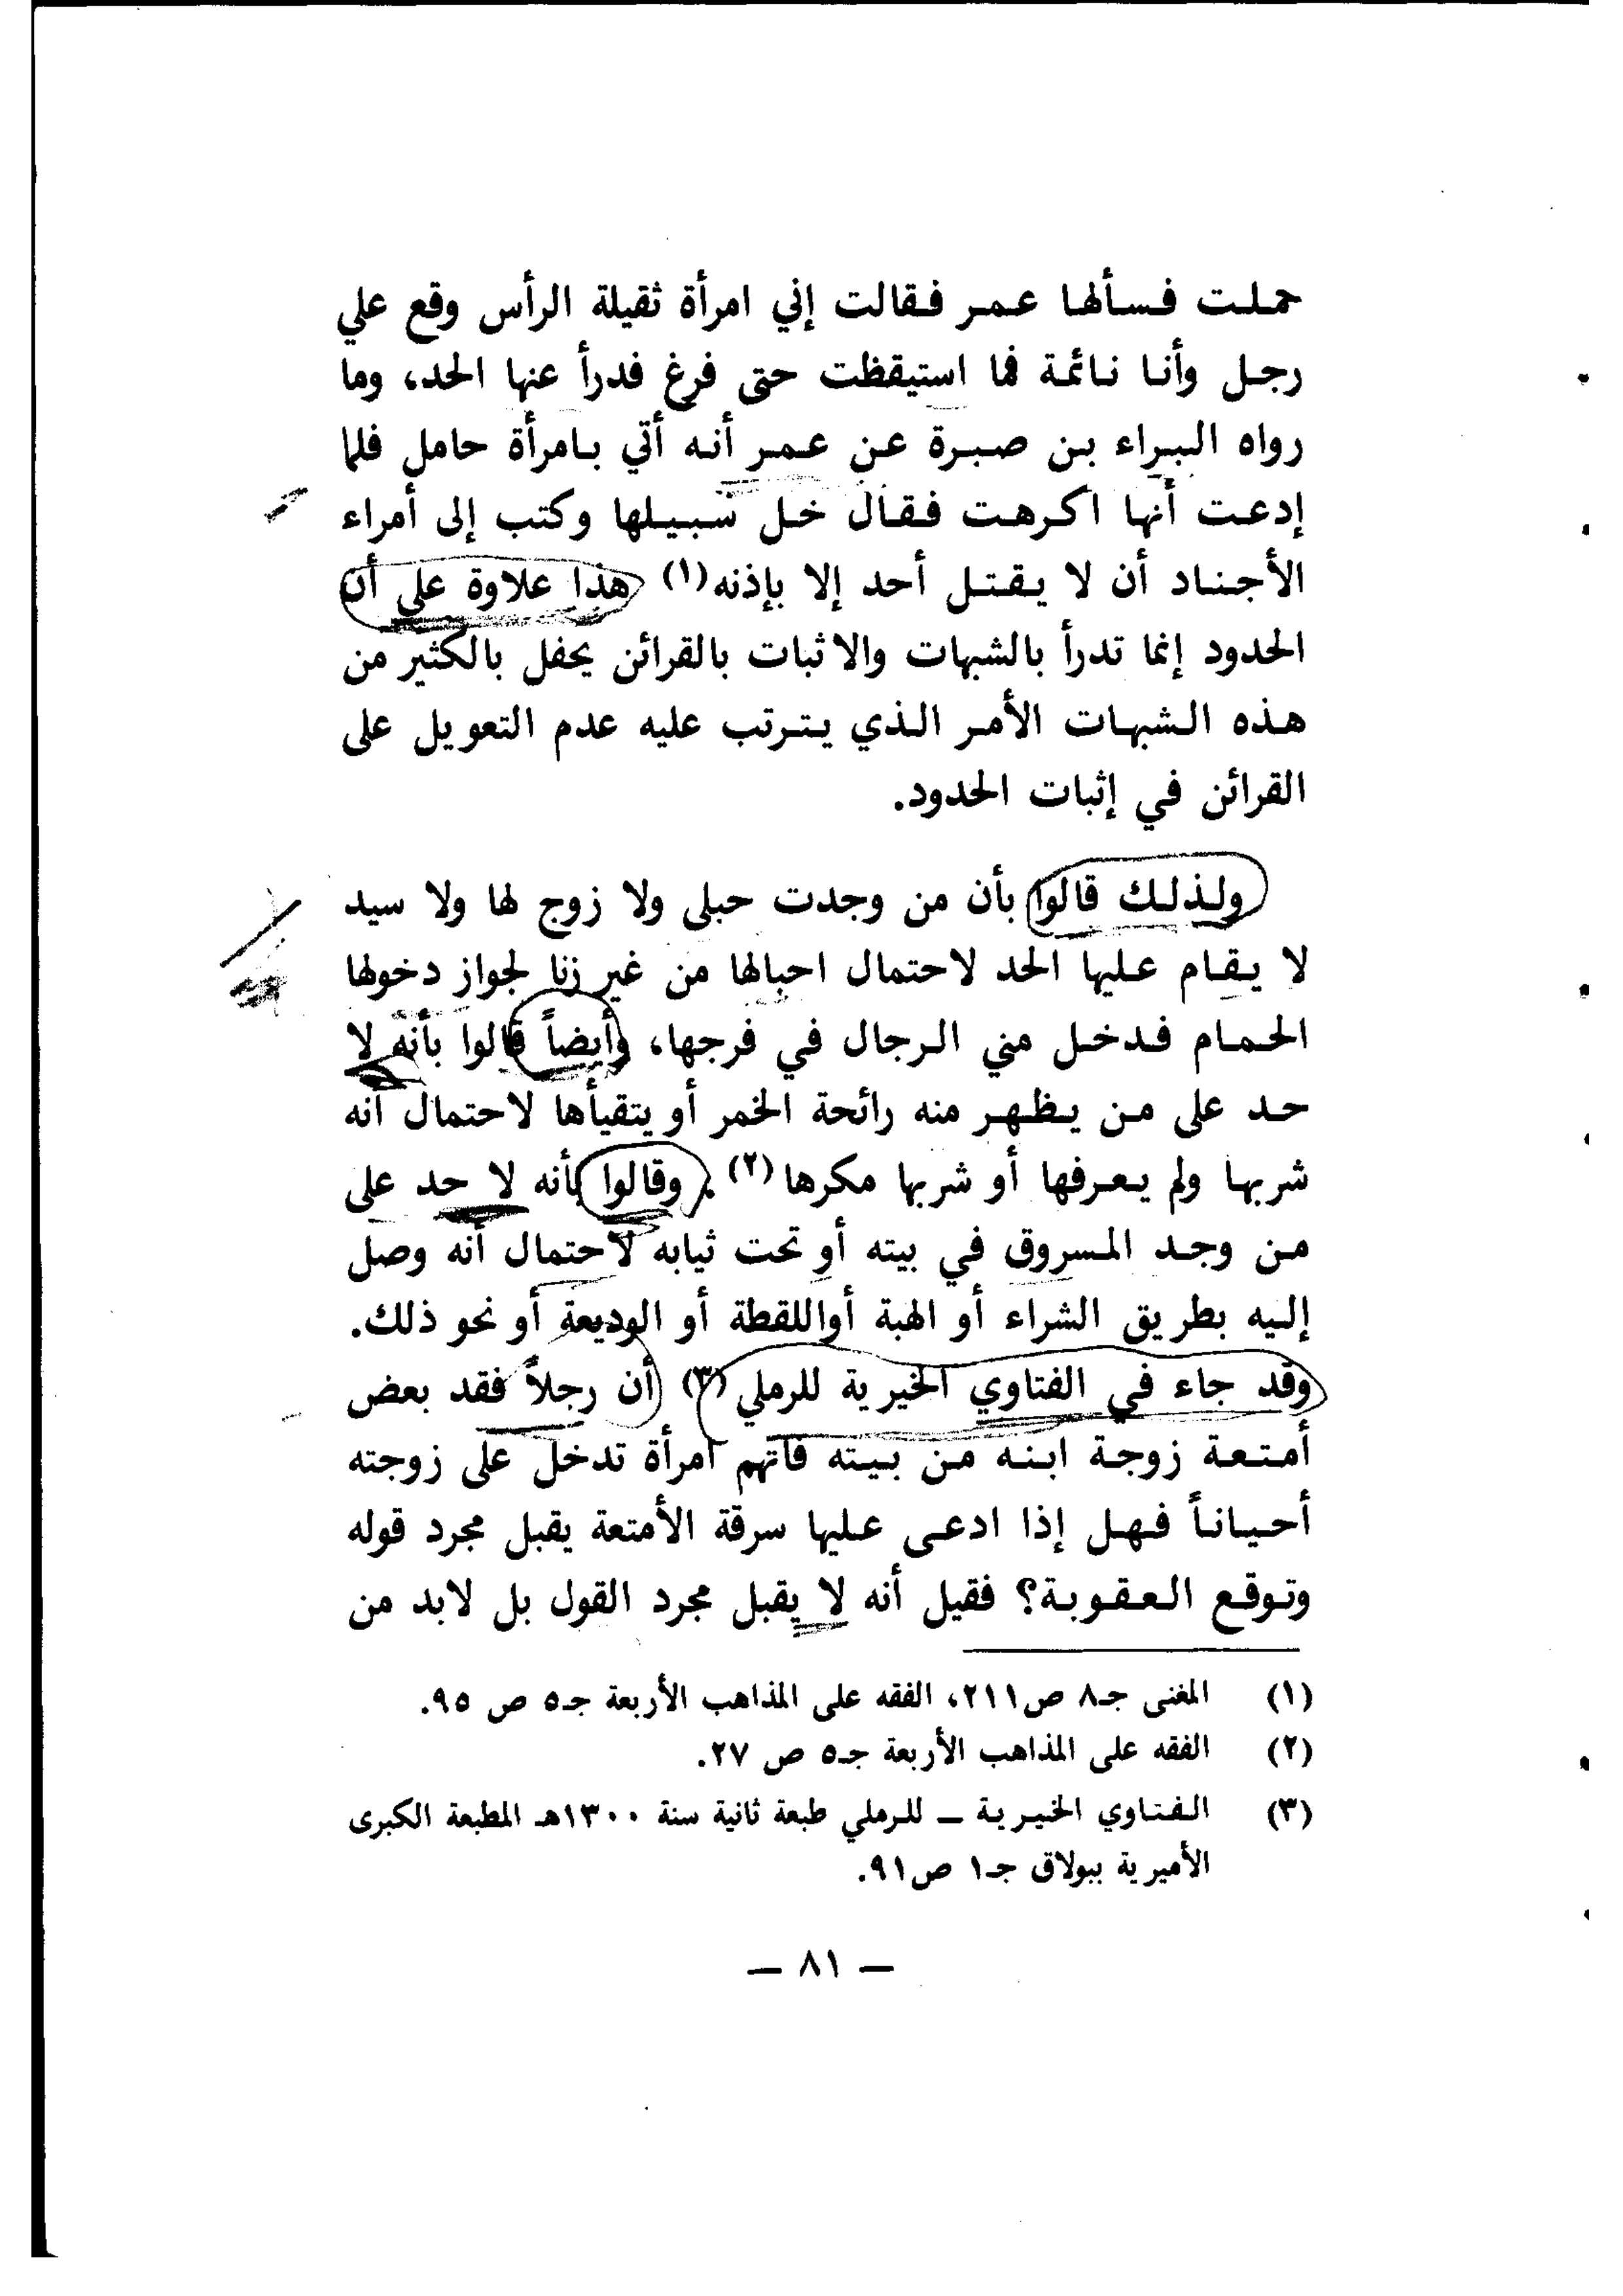 حملت فسألها عمر فقالت إني امرأة ثقيلة الرأس وقع علي
رجل وأنا نائمة فما استيقظت حتى فرغ فدرأ عنها الحد، وما
رواه البراء بن صبرة عن عمر أنه أتي بامرأة حامل فلما
إدعت أنها اكرهت فقال خل سبيلها وكتب إلى أمراء
الأجناد أن لا يقتل أحد إلا بإذنه (١) هذا علاوة على أن
الحدود إنما تدرأ بالشبهات والاثبات بالقرائن يحفل بالكثير من
هذه الشبهات الأمر الذي يترتب عليه عدم التعويل على
القرائن في إثبات الحدود.
ولذلك قالوا بأن من وجدت حبلى ولا زوج لها ولا سيد
لا يقام عليها الحد لاحتمال احبالها من غير زنا لجواز دخولها
الحمام فدخل مني الرجال في فرجها، وأيضاً قالوا بأنه لا
حد على من يظهر منه رائحة الخمر أو يتقيأها لاحتمال أنه
شربها ولم يعرفها أو شربها مكرها (٢). وقالوا بأنه لا حد على
من وجد المسروق في بيته أو تحت ثيابه لاحتمال أنه وصل
إليه بطريق الشراء أو الهبة أواللقطة أو الوديعة أو نحو ذلك.
وقد جاء في الفتاوي الخيرية للرملي (٣) أن رجلاً فقد بعض
أمتعة زوجة ابنه من بيته فاتهم امرأة تدخل على زوجته
أحياناً فهل إذا ادعى عليها سرقة الأمتعة يقبل مجرد قوله
وتوقع العقوبة؟ فقيل أنه لا يقبل مجرد القول بل لابد من
(١) المغنى جـ٨ ص٢١١، الفقه على المذاهب الأربعة جـ٥ ص ٩٥.
(٢) الفقه على المذاهب الأربعة جـ٥ ص ٢٧.
(٣) الفتاوي الخيرية ــ للرملي طبعة ثانية سنة ١٣٠٠هـ المطبعة الكبرى
الأميرية ببولاق جـ١ ص٩١.
— ٨١ —